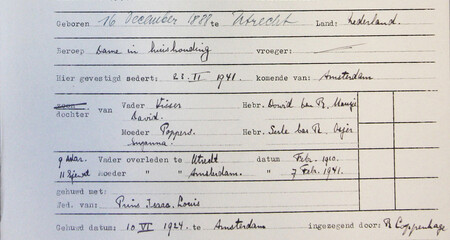 Geboren 16 December 1888 te Utrecht Land: Nederland.
Beroep Dame in huishouding vroeger:
Hier gevestigd sedert: 23 VI 1941. komende van: Amsterdam
zoon
dochter van Vader Visser Hebr. Dowid bar R.
David.
Moeder Poppers. Hebr. Serle bas R.
Susanna.
9 Adar. Vader overleden te Utrecht datum Febr. 1910.
11 Moeder " " Amsterdam. " 7 Febr. 1941.
gehuwd met:
Wed. van: Prins Isaac Louis
Gehuwd datum: 10 VI 1924. te Amsterdam ingezegend door: R Coppenhage